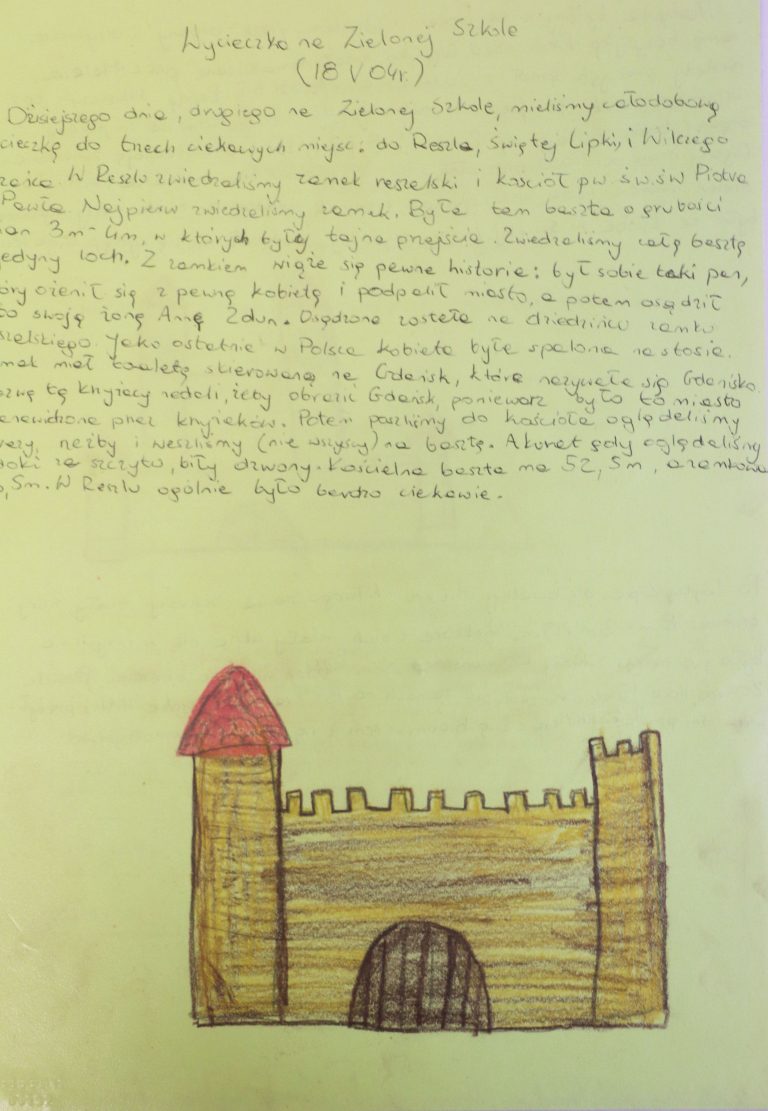 Wycieczka na Zielonej Szkole
(18 V 04r.)
Dzisiejszego dnia, drugiego na Zielonej Szkole, mieliśmy całodobową
cieczkę do trzech ciekawych miejsc: do Reszla, Świętej Lipki, i Wilczego
W Reszlu zwiedzaliśmy zamek reszelski i kościół pw. św.św Piotra
Pawła Najpierw zwiedzaliśmy zamek. Była tam baszta o grubości
ian 3m-4m, w których były tajne przejścia. Zwiedzaliśmy całą basztę
jedyny loch. Z zamkiem wiąże się pewna historia: był sobie taki pan,
óry ożenił się z pewną kobietą i podpalił miasto, a potem osądził
o swoją żonę Annę Zdun. Osądzona została na dziedzińcu zamku
szelskiego. Jako ostatnia w Polsce kobieta była spalona na stosie.
mek miał toaletę skierowaną na Gdańsk, która nazywała się Gdańsko.
zwę tę knyżacy nadali, żeby obrazić Gdańsk, ponieważ było to miasto
enawidzone przez knyżaków. Potem poszliśmy do kościoła oglądaliśmy
rzeźby i weszliśmy (nie wszyscy) na basztę. Akurat gdy oglądaliśmy
doki ze szczytu, biły dzwony. Kościelna baszta ma 52,5m, a zamkowa
,5m. W Reszlu ogólnie było bardzo ciekawie.